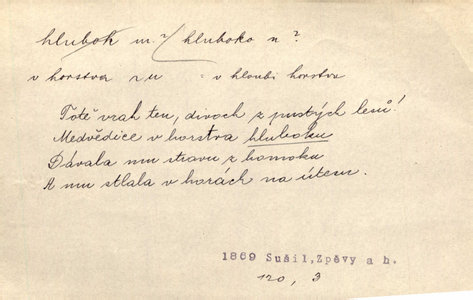 hlubok m.? / hluboko n?
v horstva ~u = v hloubi horstva
Totě vrah ten, divoch z pustých lesů!
Medvědice v horstva hluboku
Dávala mu stravu z homoku
A mu stlala v horách na útesu.
1869 Sušil, Zpěvy a h.
120, 3